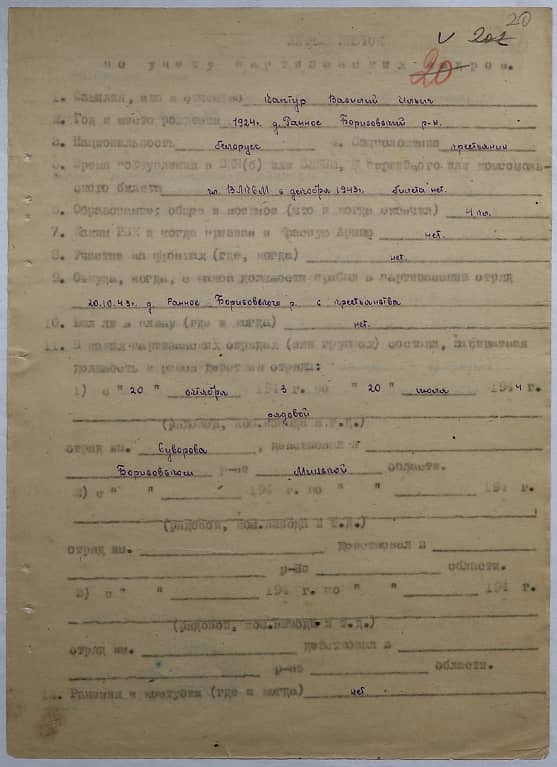 20
V 202
20
ЛИЧНЫЙ ЛИСТОК
по учету партизанских кадров.
1. Фамилия, имя и отчество Кантур Василий Ильич
2. Год и место рождения 1924г. д. Ранное Борисовский р-н.
3. Национальность белорус 4. Соцположение крестьянин
5. Время вступления в ВКП(б) или ВЛКСМ, № партийного или комсомоль-
ского билета чл. ВЛКСМ с декабря 1943г. билета нет.
6. Образование: общее и военное (что и когда окончил) 4 кл.
7. Каким РВК и когда призван в Красную Армию нет.
8. Участие на фронтах (где, когда) нет.
9. Откуда, когда, с какой должности прибыл в партизанский отряд
20.10.43г. д. Ранное Борисовского р. с крестьянства
10. Был ли в плену (где и когда) нет.
11. В каких партизанских отрядах (или группах) состоял, занимаемая
должность и район действия отряда:
1) с " 20 " октября 1943 г. по " 20 " июля 1944 г.
рядовой
(рядовой, ком.взвода и т.д.)
отряд им. Суворова, действовал в
Борисовском р-не Минской области.
2) с " " 194 г. по " " 194 г.
(рядовой, ком.взвода и т.д.)
отряд им. действовал в
р-не области.
3) с " " 194 г. по " " 194 г.
(рядовой, ком.взвода и т.д.)
отряд им. действовал в
р-не области.
12. Ранения и контузии (где и когда) нет.